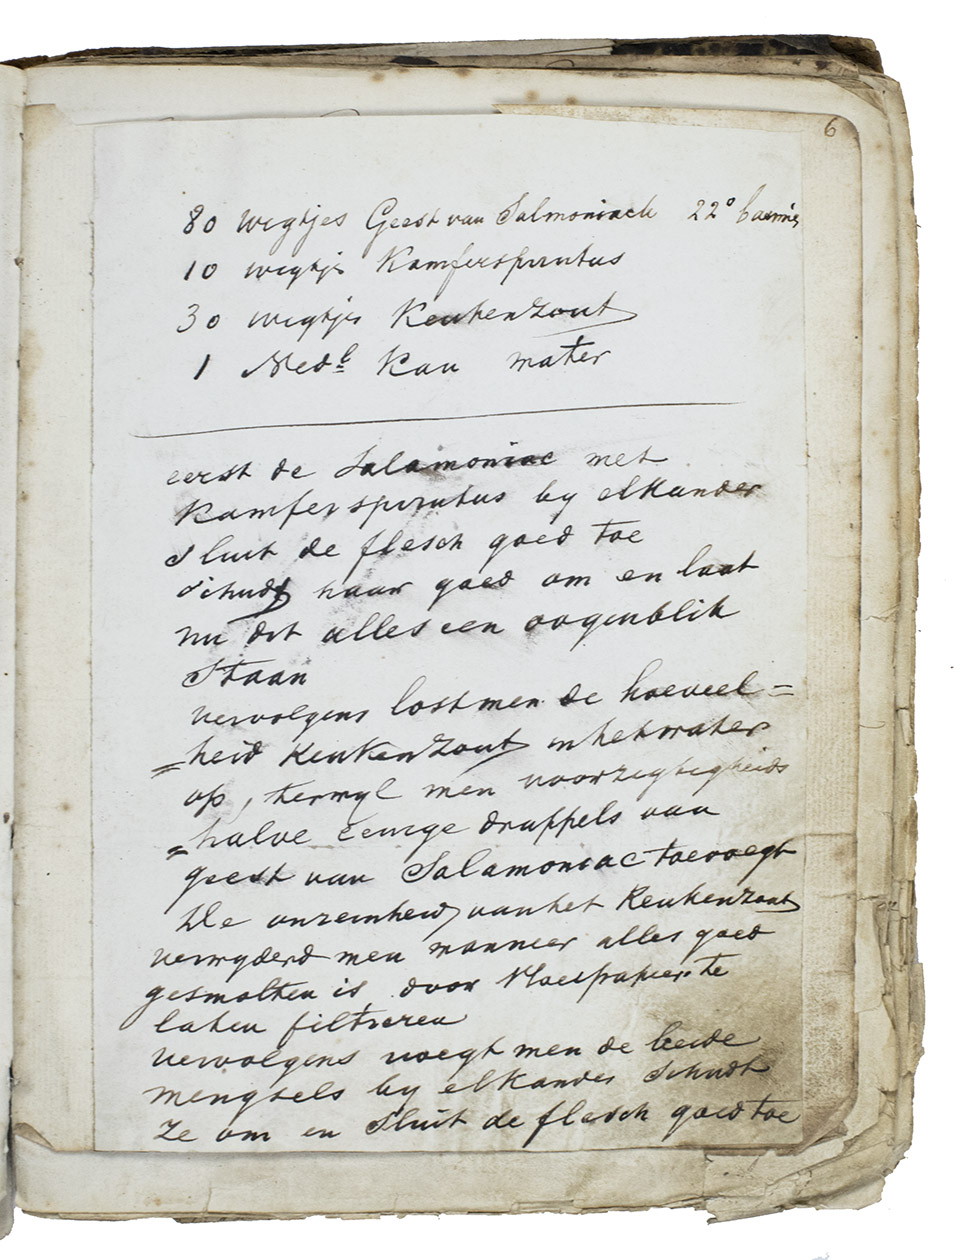 6
80 wigtjes Geest van Salmoniack 22°
10 wigtjes Kamferspiritus
30 wigtjes Keukenzout
1 Nedl Kan water
eerst de Salamoniac met
Kamferspiritus by elkander
Sluit de flesch goed toe
Schudt haar goed om en laat
nu dit alles een oogenblik
Staan
vervolgens lost men de hoeveel=
=heid Keukenzout in het water
op, terwyl men voorzigtigheids
=halve eenige druppels van
geest van Salamoniac toevoegt
De onreinheid van het Keukenzout
verwyderd men wanneer alles goed
gesmolten is door Vloeipapier te
laten filtreren
vervolgens voegt men de beide
mengsels by elkander Schudt
ze om en Sluit de flesch goed toe